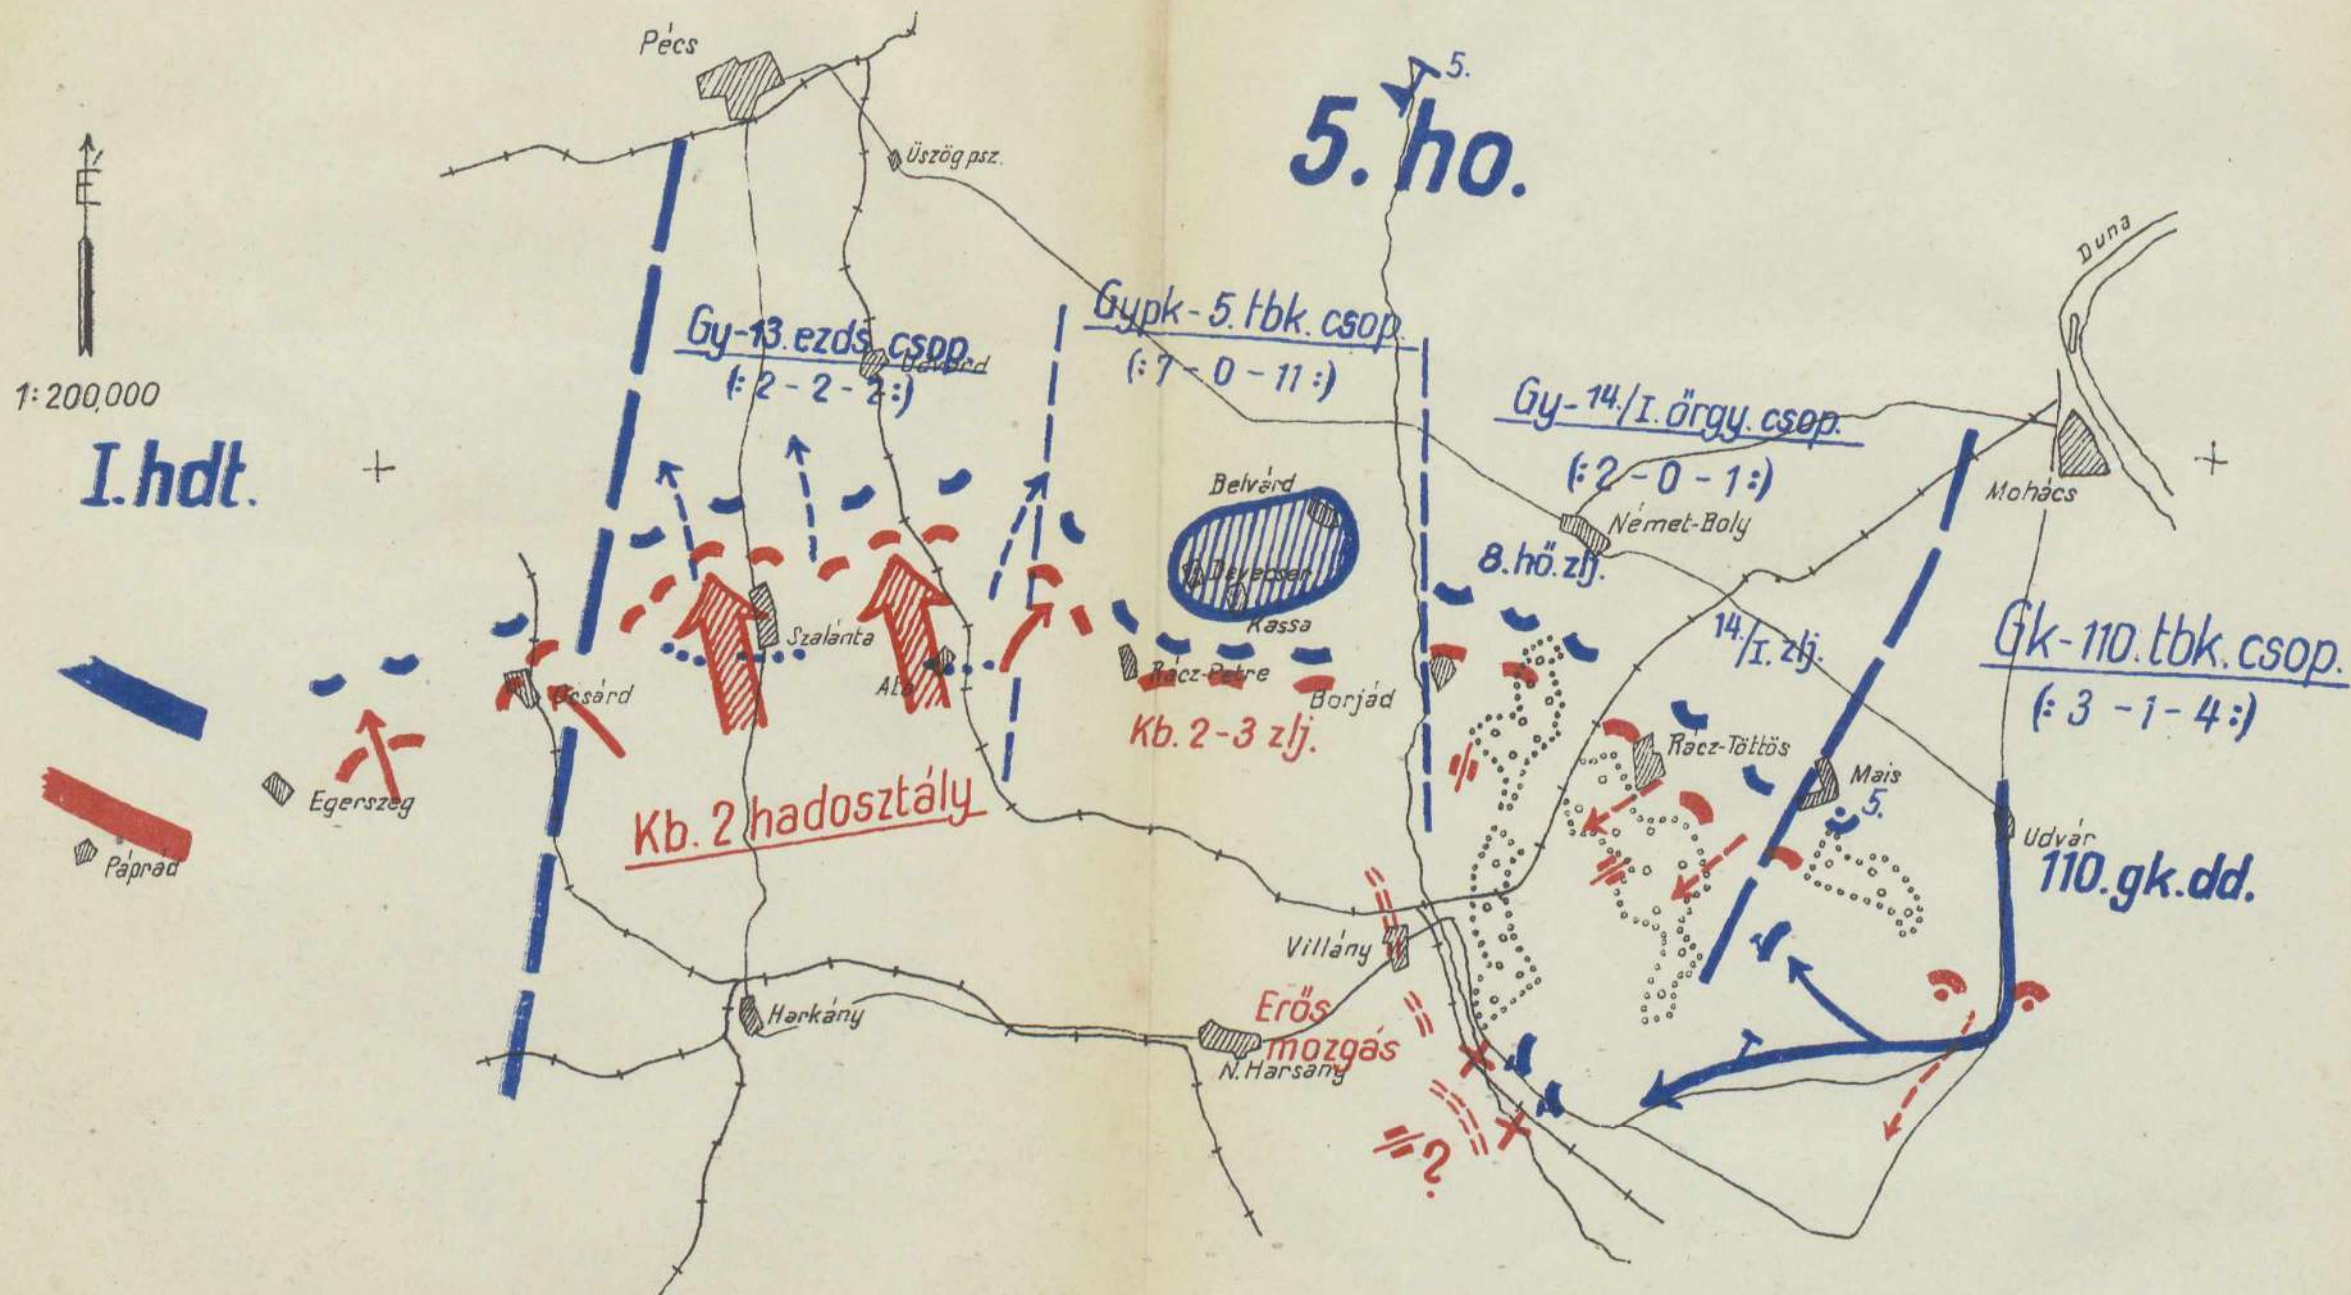 Pécs
Üszög psz.
5.
5. ho.
É
1:200,000
Duna
Gy-13. ezds. csop.
Udvard
(: 2 - 2 - 2 :)
Gypk - 5. tbk. csop.
(: 7 - 0 - 11 :)
Gy- 14./I. őrgy. csop.
(: 2 - 0 - 1 :)
I. hdt.
Mohács
Belvárd
Német-Boly
Devecser
Kassa
8. hő. zlj.
14./I. zlj.
Gk-110. tbk. csop.
(: 3 - 1 - 4 :)
Szalánta
Ata
Rácz-Petre
Borjád
Ócsárd
Kb. 2-3 zlj.
Rácz-Töttös
Mais
5.
Egerszeg
Kb. 2 hadosztály
Udvár
Páprád
110. gk. dd.
Villány
Harkány
Erős
mozgás
N. Harsány
?